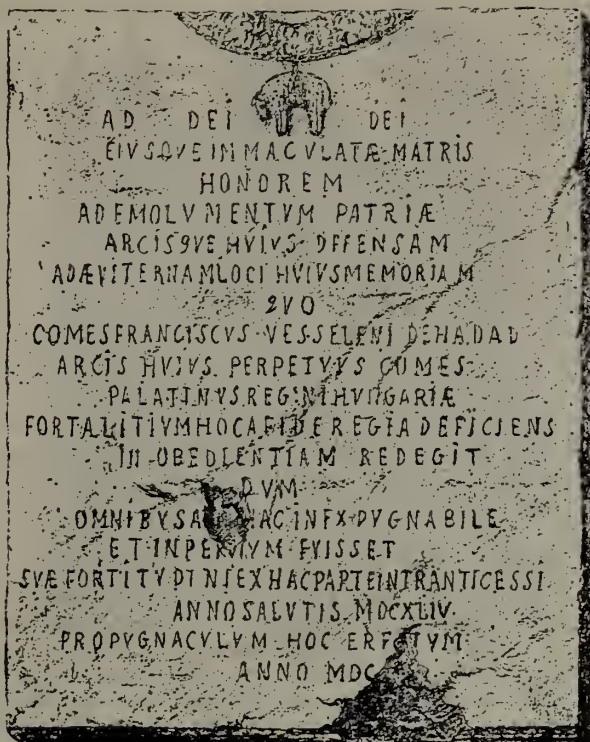 AD DEI DEI
EIVSQVE IMMACVLATÆ MATRIS
HONOREM
AD EMOLVMENTVM PATRIÆ
ARCISQVE HVIVS DEFENSAM
AD ÆVITERNAM LOCI HVIVS MEMORIAM
QVO
COMES FRANCISCVS VESSELENI DE HADAD
ARCIS HVIVS PERPETVVS COMES
PALATINVS REGNI HVNGARIÆ
FORTALITIVM HOC A FIDE REGIA DEFICIENS
IN OBEDIENTIAM REDEGIT
DVM
OMNIBVS HAC INEXPVGNABILE
ET INPERVIVM FVISSET
SVÆ FORTITVDINI EX HAC PARTE INTRANTI CESSI
ANNO SALVTIS MDCXLIV
PROPVGNACVLVM HOC ERECTVM
ANNO MDC